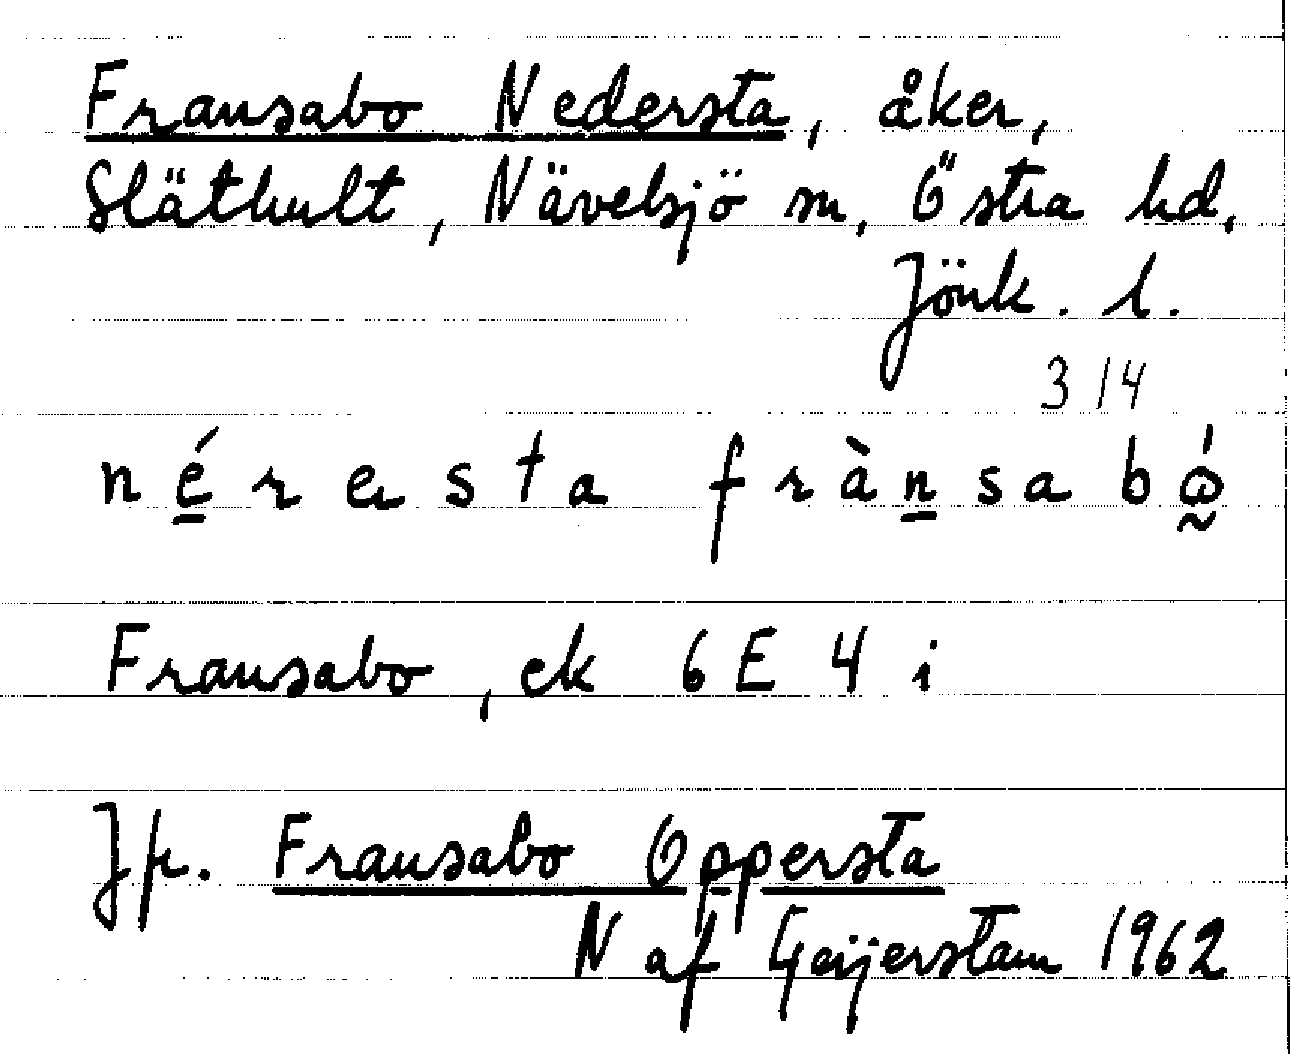 Fransabo Nedersta, åker,
Släthult, Nävelsjö sn, Östra hd,
Jönk. l.
3/4
n é̱ r e s t a f r à ṉ s a b ó̰
Fransabo, ek 6 E 4 i
Jfr. Fransabo Oppersta
N af Geijerstam 1962